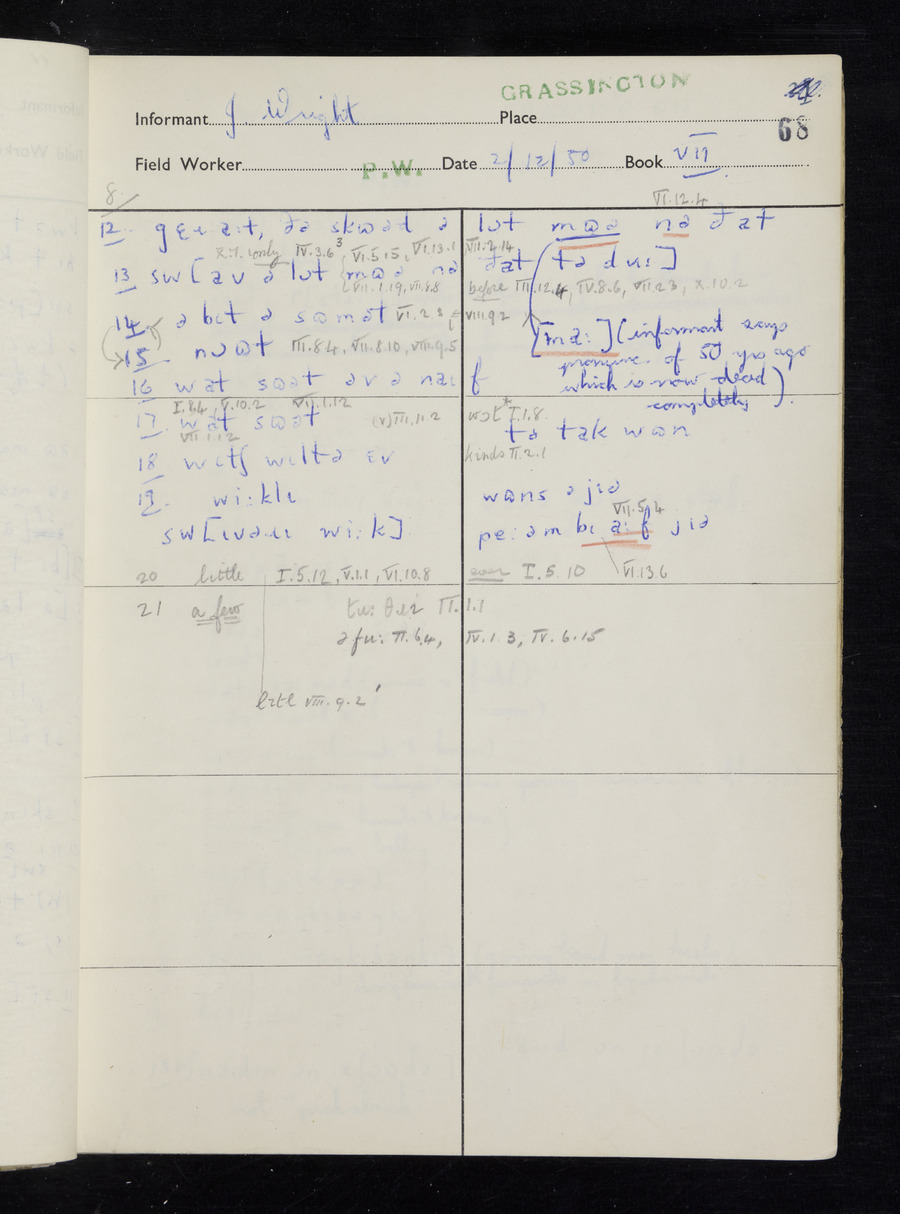 GRASSINGTON
Informant J. Wright Place
68
Field Worker P.W. Date 2/12/50 Book VII
8
VI.12.4
12 gɛɪ aːt, ðə skwəd ə
lɒt mʊə nə ðat
X.7. only IV.3.6³, VI.5.15, VI.13.1
VII.2.14
13 sw[av ə lɒt mʊə nə
ðat [tə duː]
VII.1.19, VII.8.8
before III.12.4, IV.8.6, VII.2.3, X.10.2
14 ə bɪt ə sʊmət VI.2.8,
VIII.9.2
[mɑː] (informant says
15. nɔʊt III.8.4, VII.8.10, VIII.9.5
pronunc. of 50 yrs ago
16 wat sʊət əv ə naɪf
which is now dead
completely).
I.8.4, V.10.2 VII.1.12
17. wat sʊət (v) III.11.2
wɔt* I.1.8.
tə tak wʊn
VII.1.12
kinds II.2.1
18 wɪtʃ wɪltə ɛv
19. wiːklɪ
wʊns ə jɪə
VII.5.4
sw[ɪvəɪ wiːk]
peːəm bɪ aːf jɪə
20 little I.5.12, V.1.1, VI.10.8
over I.5.10 VI.13.6
21 a few tuː θɹiː II.1.1
ə fuː II.6.4, IV.1.3, IV.6.15
lɪtl VIII.9.2